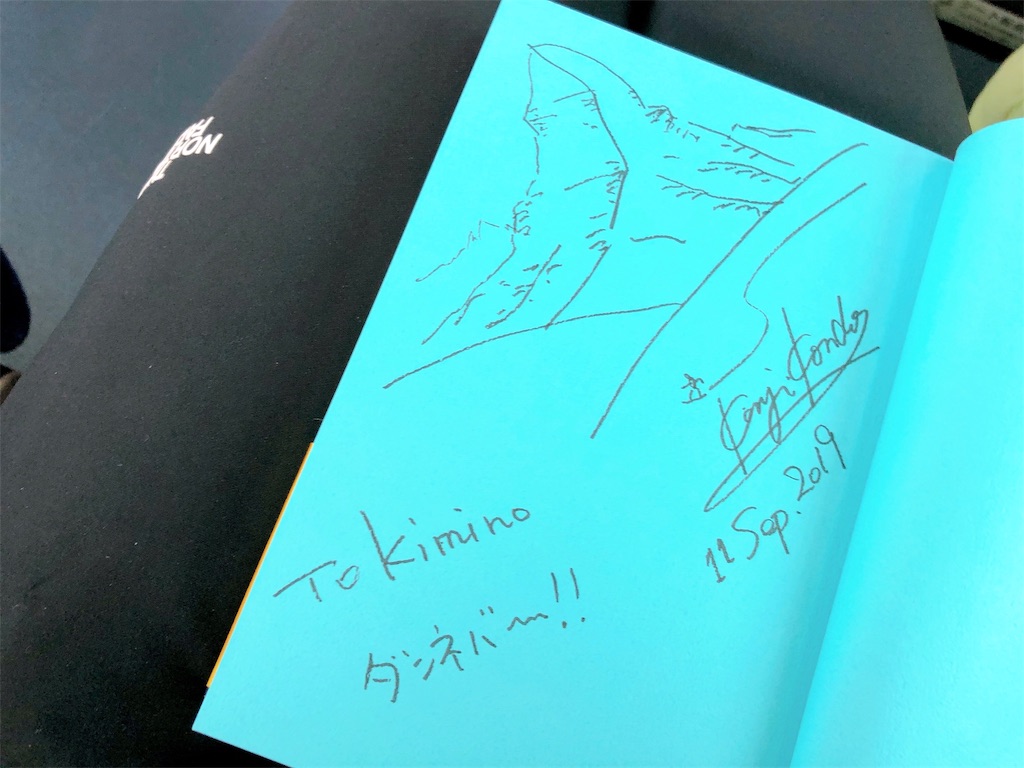 Kenji Kondo
11 Sep. 2019
To Kimino
ダンネバー!!